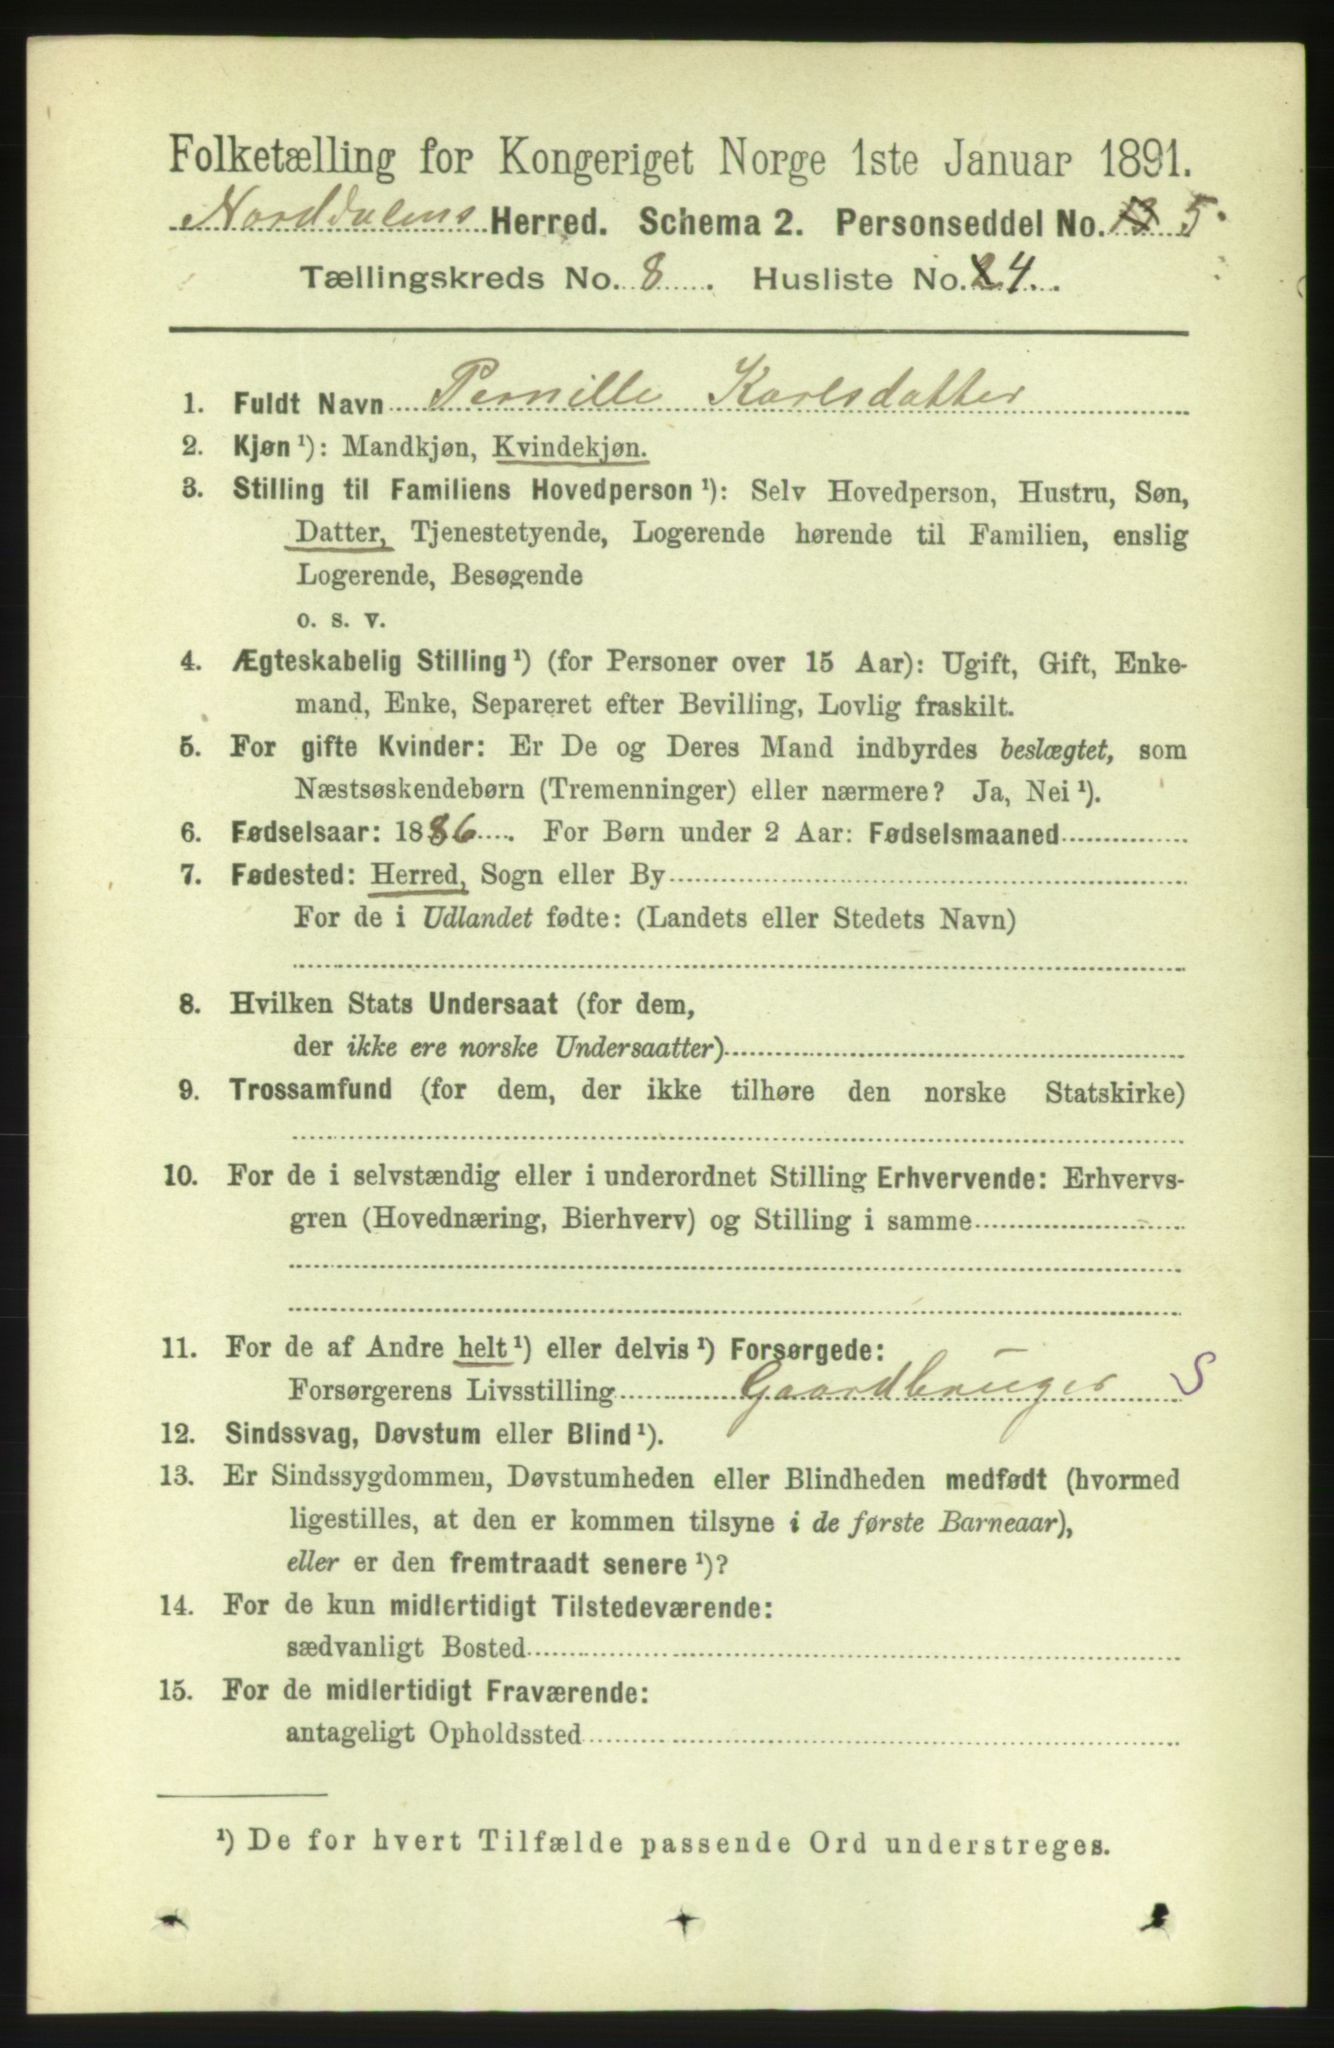 Folketælling for Kongeriget Norge 1ste Januar 1891.
Norddalens Herred. Schema 2. Personseddel No. 5.
Tællingskreds No. 8. Husliste No. 4.
1. Fuldt Navn Pernille Karlsdatter
2. Kjøn ¹): Mandkjøn, Kvindekjøn.
3. Stilling til Familiens Hovedperson ¹): Selv Hovedperson, Hustru, Søn,
Datter, Tjenestetyende, Logerende hørende til Familien, enslig
Logerende, Besøgende
o. s. v.
4. Ægteskabelig Stilling ¹) (for Personer over 15 Aar): Ugift, Gift, Enke-
mand, Enke, Separeret efter Bevilling, Lovlig fraskilt.
5. For gifte Kvinder: Er De og Deres Mand indbyrdes beslægtet, som
Næstsøskendebørn (Tremenninger) eller nærmere? Ja, Nei ¹).
6. Fødselsaar: 1886. For Børn under 2 Aar: Fødselsmaaned
7. Fødested: Herred, Sogn eller By
For de i Udlandet fødte: (Landets eller Stedets Navn)
8. Hvilken Stats Undersaat (for dem,
der ikke ere norske Undersaatter)
9. Trossamfund (for dem, der ikke tilhøre den norske Statskirke)
10. For de i selvstændig eller i underordnet Stilling Erhvervende: Erhvervs-
gren (Hovednæring, Bierhverv) og Stilling i samme
11. For de af Andre helt ¹) eller delvis ¹) Forsørgede:
Forsørgerens Livsstilling Gaardbruger S
12. Sindssvag, Døvstum eller Blind ¹).
13. Er Sindssygdommen, Døvstumheden eller Blindheden medfødt (hvormed
ligestilles, at den er kommen tilsyne i de første Barneaar),
eller er den fremtraadt senere ¹)?
14. For de kun midlertidigt Tilstedeværende:
sædvanligt Bosted
15. For de midlertidigt Fraværende:
antageligt Opholdssted
¹) De for hvert Tilfælde passende Ord understreges.